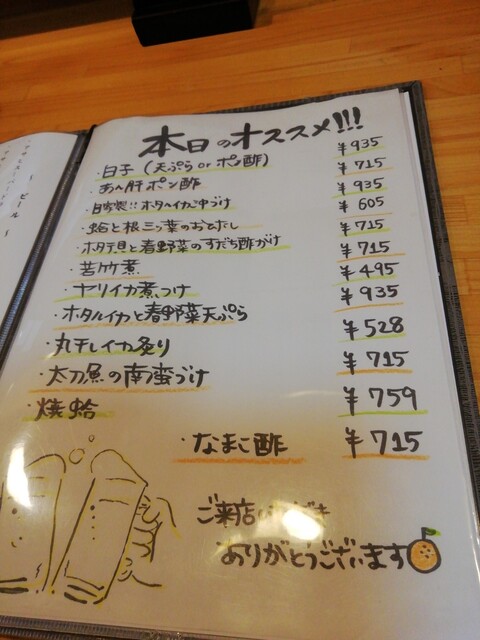 本日のオススメ!!!
・白子(天ぷら or ポン酢) ¥935
・あん肝ポン酢 ¥715
・自家製!!ホタルイカ沖づけ ¥935
・蛤と根三つ葉のおひたし ¥605
・ホタテ貝と春野菜のすだち酢がけ ¥715
・若竹煮 ¥715
・ヤリイカ煮つけ ¥495
・ホタルイカと春野菜天ぷら ¥935
・丸干しイカ炙り ¥528
・太刀魚の南蛮づけ ¥715
・焼蛤 ¥759
・なまこ酢 ¥715
ご来店いただき
ありがとうございます
〜 ビール 〜